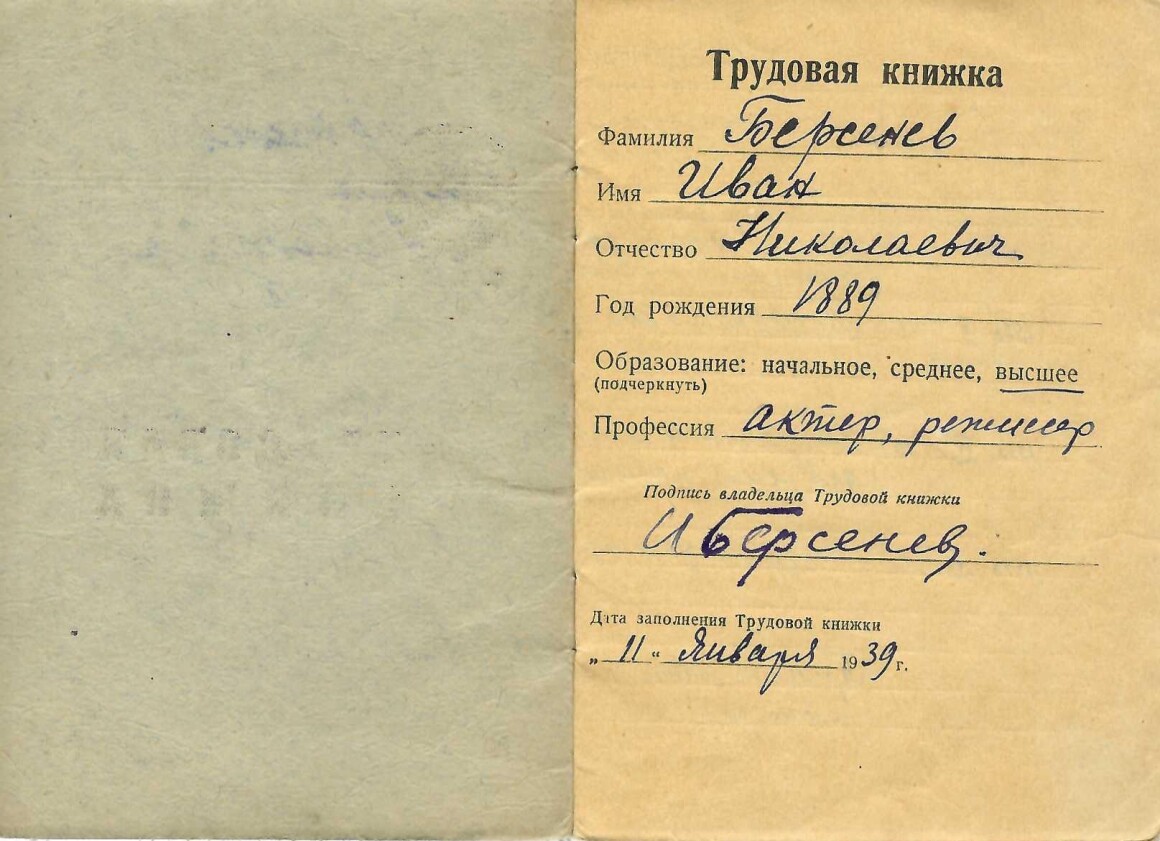 Трудовая книжка
Фамилия Берсенев
Имя Иван
Отчество Николаевич
Год рождения 1889
Образование: начальное, среднее, высшее
(подчеркнуть)
Профессия актер, режиссер
Подпись владельца Трудовой книжки
И Берсенев.
Дата заполнения Трудовой книжки
„ 11 “ Января 1939 г.